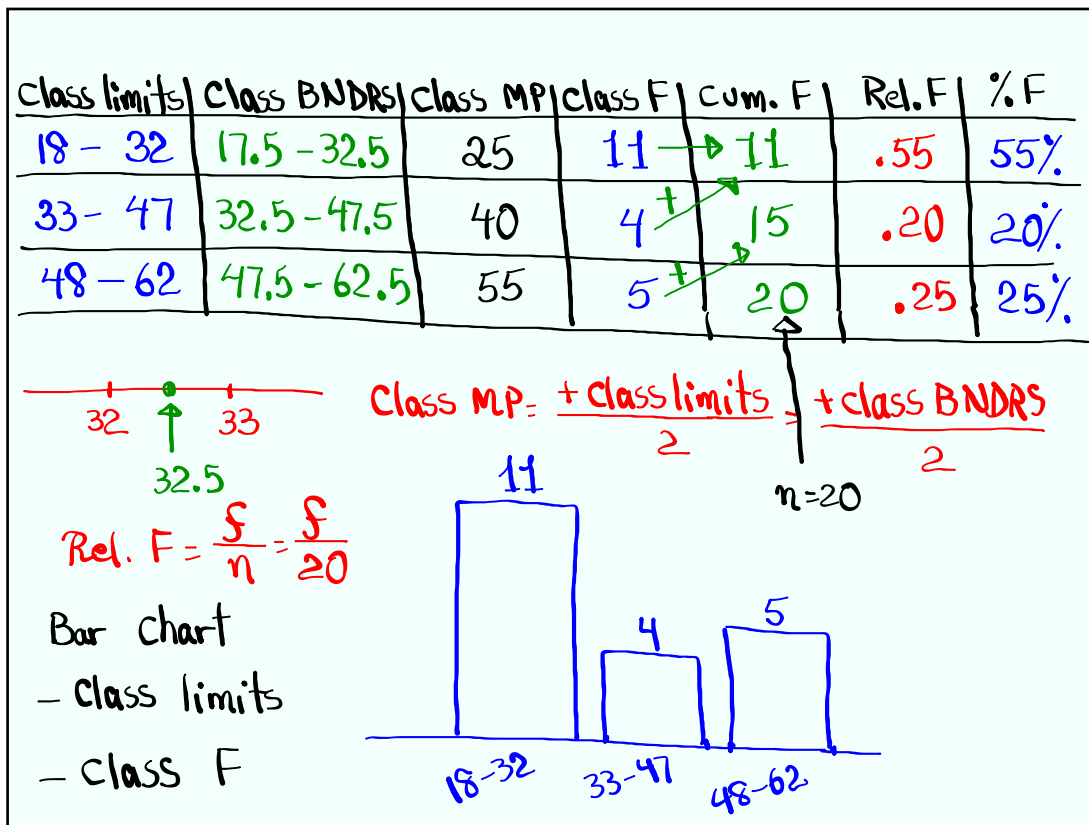 Class limits Class BNDRS Class MP Class F Cum. F Rel. F %F
18 - 32 17.5 - 32.5 25 11 11 .55 55%
33 - 47 32.5 - 47.5 40 4 + 15 .20 20%
48 - 62 47.5 - 62.5 55 5 + 20 .25 25%
32 33
32.5
Class MP = + Class limits / 2 = + class BNDRS / 2
n=20
Rel. F = f/n = f/20
Bar Chart
- Class limits
- Class F
11 4 5
18-32 33-47 48-62